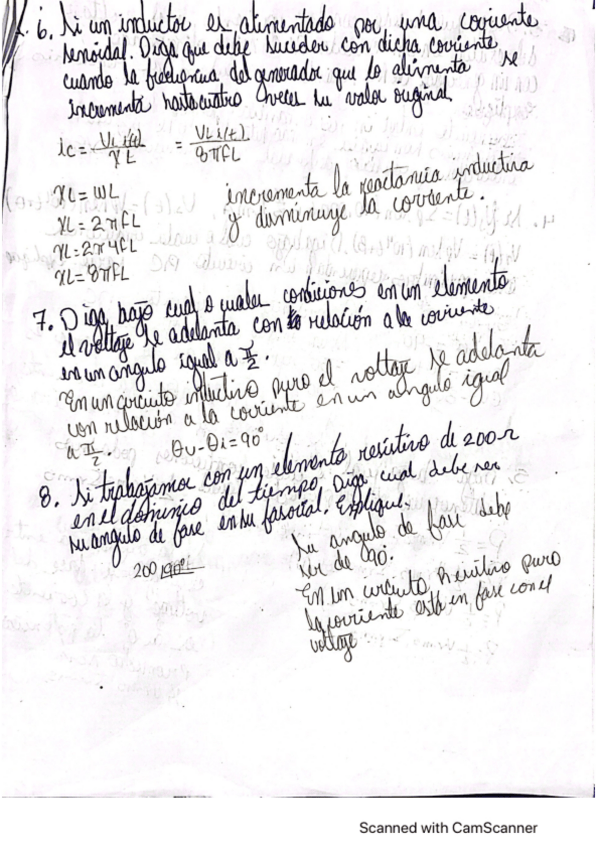 6. Si un inductor es alimentado por una corriente
senoidal. Diga que debe suceder con dicha corriente
cuando la frecuencia del generador que lo alimenta se
incrementa hasta cuatro veces su valor original.
ic = VL i(t) / XL = VL i(t) / 8πfL
XL = WL
XL = 2πfL
XL = 2π4fL
XL = 8πfL
incrementa la reactancia inductiva
y disminuye la corriente.
7. Diga bajo cual o cuales condiciones en un elemento
el voltaje se adelanta con relación a la corriente
en un angulo igual a π/2.
En un circuito inductivo puro el voltaje se adelanta
con relación a la corriente en un angulo igual
a π/2. θv-θi=90°
8. Si trabajamos con un elemento resistivo de 200Ω
en el dominio del tiempo. Diga cual debe ser
su angulo de fase en su fasorial. Explique.
200
Su angulo de fase debe
ser de 90.
En un circuito Resistivo puro
la corriente está en fase con el
voltaje
Scanned with CamScanner